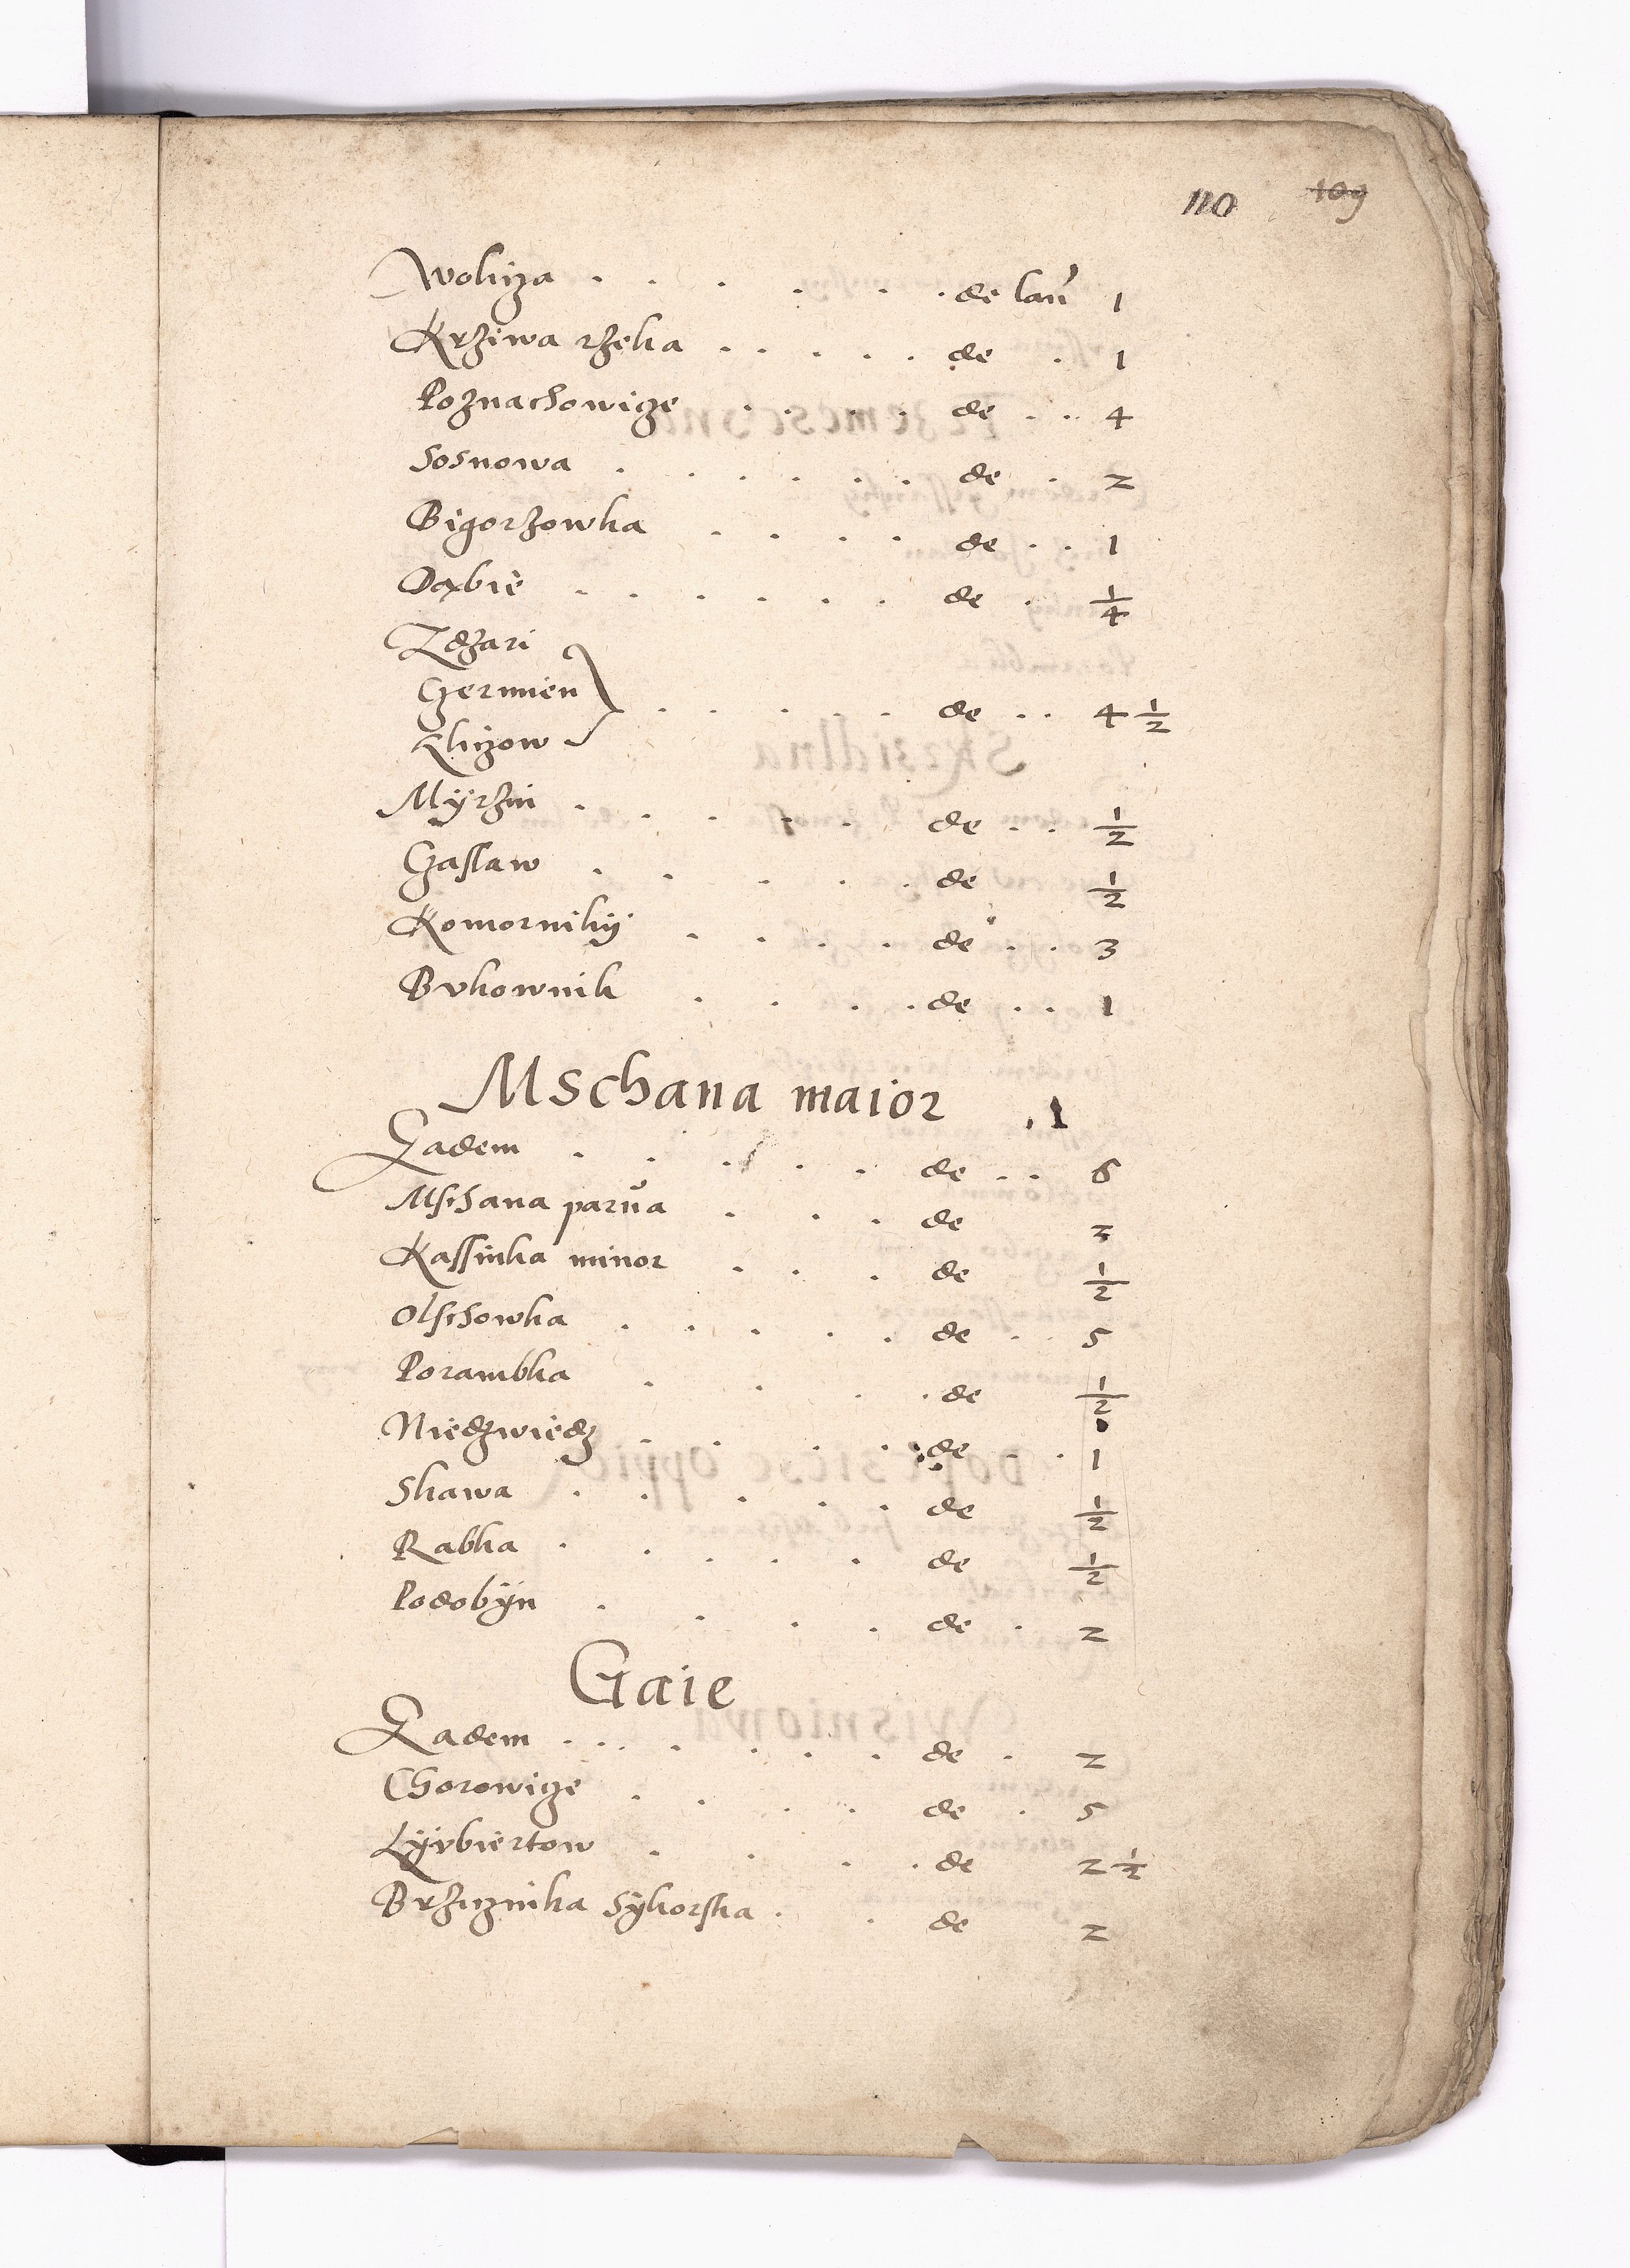 110 109
Wolicza . . . . . . de lan 1
Krziwa rzeka . . . . . de . 1
Poznachowicze . . . . de . . 4
Sosnowa . . . . . . de . 2
Bigorzowka . . . . de . . 1
Dąbie . . . . . . de . 1/4
Zdzari
Czermien
Kliczow . . . . . de . . 4 1/2
Mÿrzni . . . . . de . . 1/2
Czaslaw . . . . . de 1/2
Komornikÿ . . . . de . . 3
Bvkownik . . . . de . . 1
Mschana maior . 1
Eadem . . . . . de . . 6
Mschana parua . . . de 3
Kassinka minor . . . de 1/2
Olschowka . . . . . de . . 5
Porambka . . . . de 1/2
Niedzwiedz . . . . de . . 1
Skawa . . . . . de 1/2
Rabka . . . . . de 1/2
Podobÿn . . . . de . 2
Gaie
Eadem . . . . . . . de . 2
Chorowicze . . . . de . 5
Lÿvbiertow . . . . de 2 1/2
Brzuznika Sÿkorska . . de 2